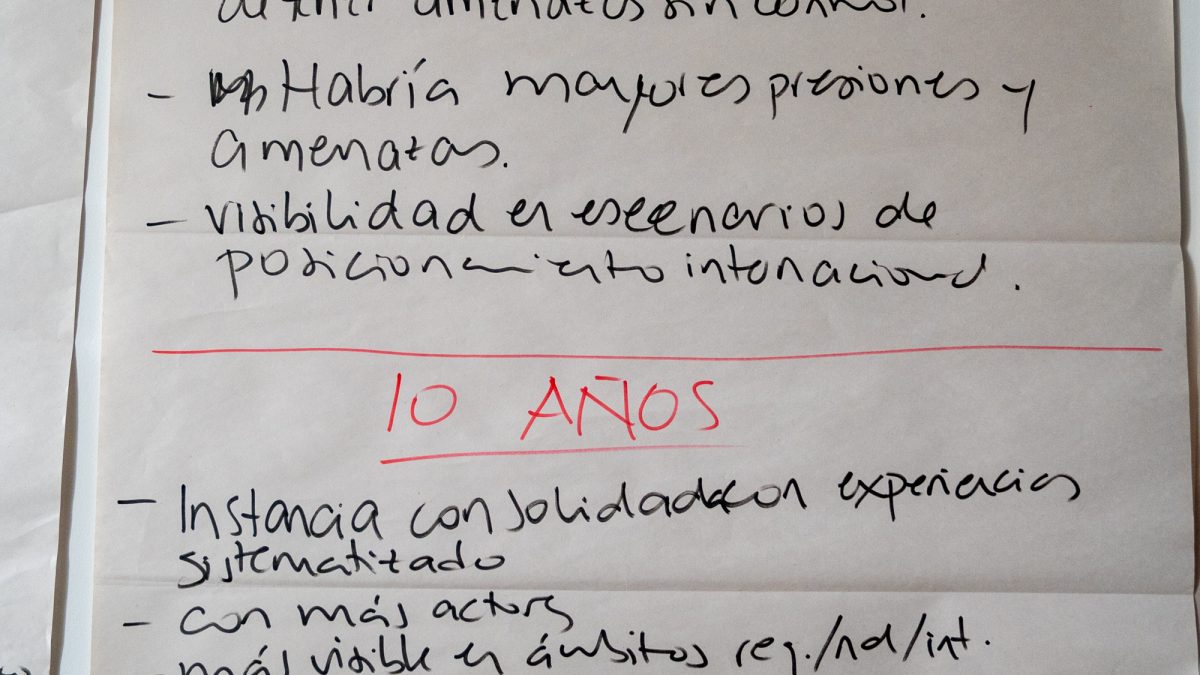 amenazas sin control.
- Habría mayores presiones y
amenazas.
- visibilidad en escenarios de
posicionamiento internacional.
10 AÑOS
- Instancia consolidada con experiencias
sistematizado
- con más actores
- más visible en ámbitos reg./nal/int.